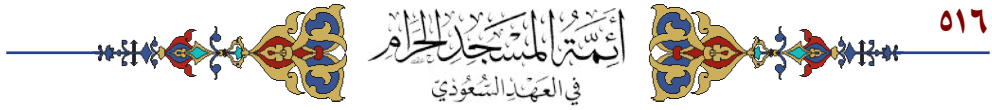 ٥١٦
أَئِمَّةُ المَسْجِدِ الحَرَامِ
فِي العَهْدِ السُّعُودِيّ